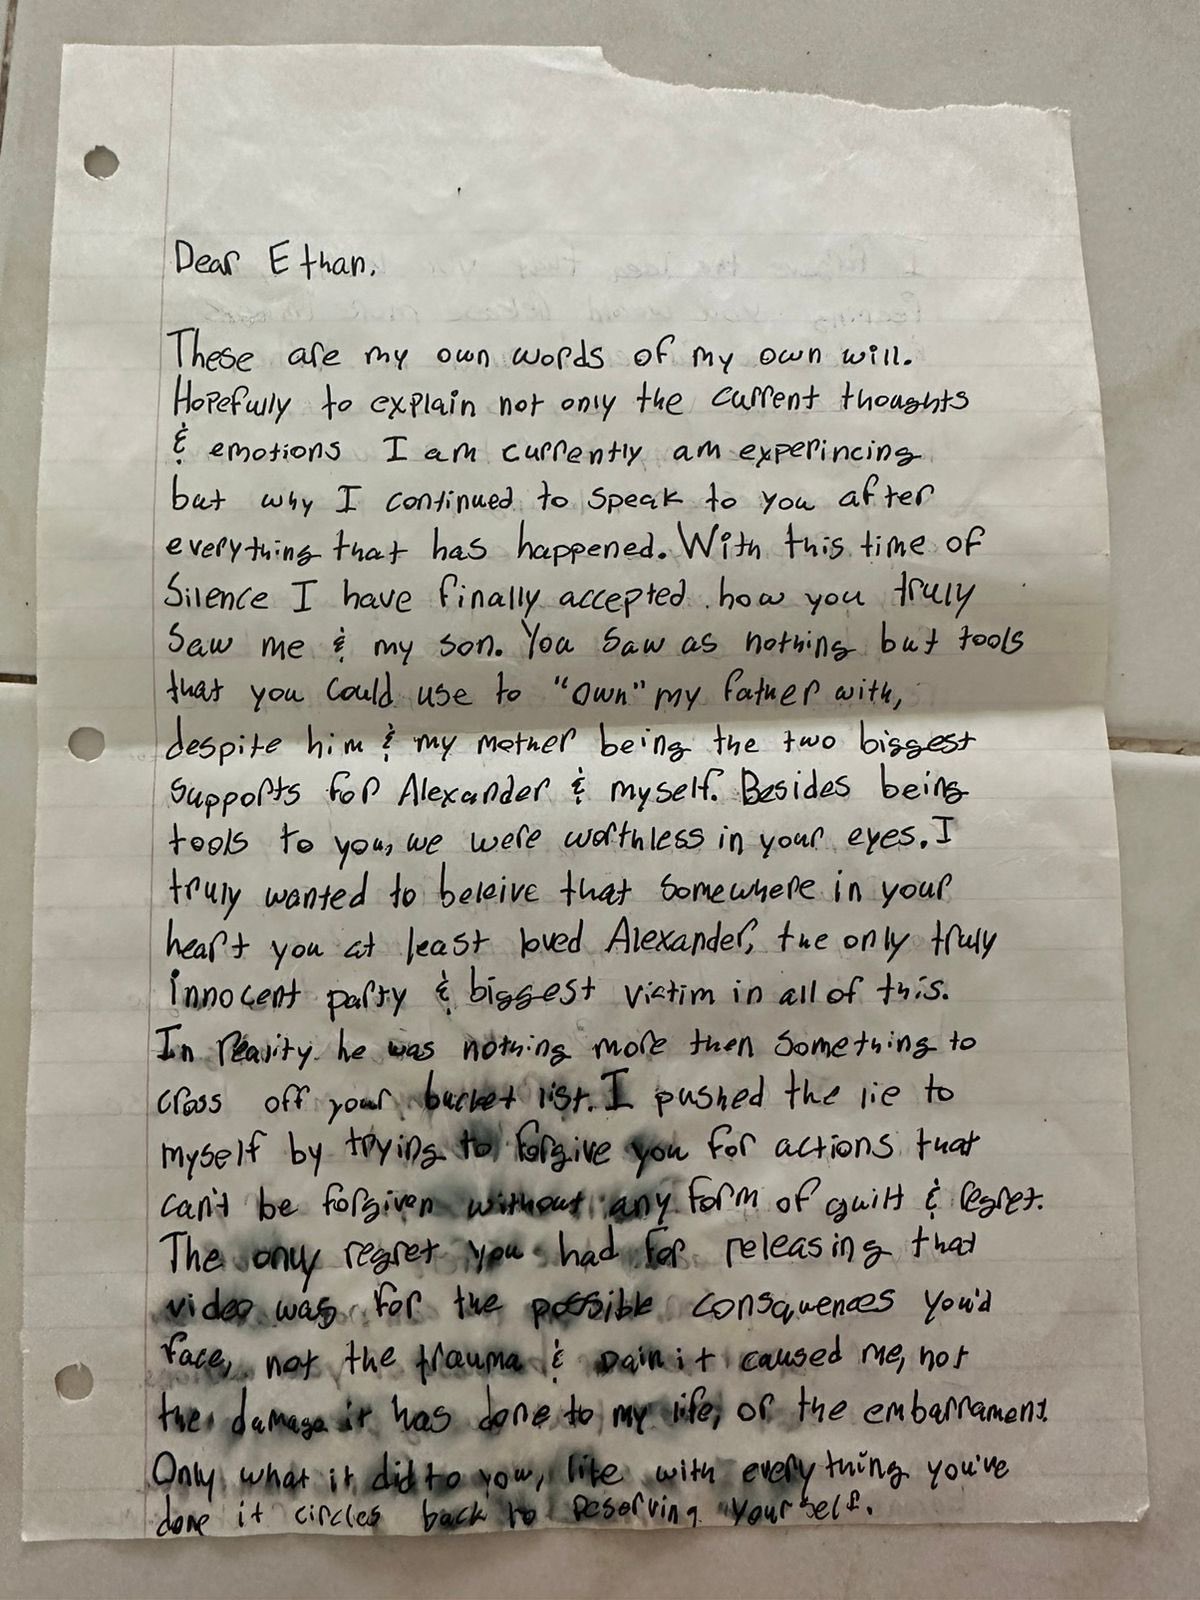 Dear Ethan.
These are my own words of my own will.
Hopefully to explain not only the current thoughts
& emotions I am currently am experincing
but why I continued to speak to you after
everything that has happened. With this time of
Silence I have finally accepted how you truly
Saw me & my son. You Saw as nothing but tools
that you could use to "own" my father with,
despite him & my mother being the two biggest
supports for Alexander & myself. Besides being
tools to you, we were worthless in your eyes. I
truly wanted to beleive that somewhere in your
heart you at least loved Alexander, the only truly
innocent party & biggest victim in all of this.
In reality he was nothing more then something to
cross off your bucket list. I pushed the lie to
myself by trying to forgive you for actions that
can't be forgiven without any form of guilt & regret.
The only regret you had for releasing that
video was for the possible consquences you'd
face, not the trauma & pain it caused me, not
the damage it has done to my life, or the embarrament.
Only what it did to you, like with everything you've
done it circles back to Reserving yourself.